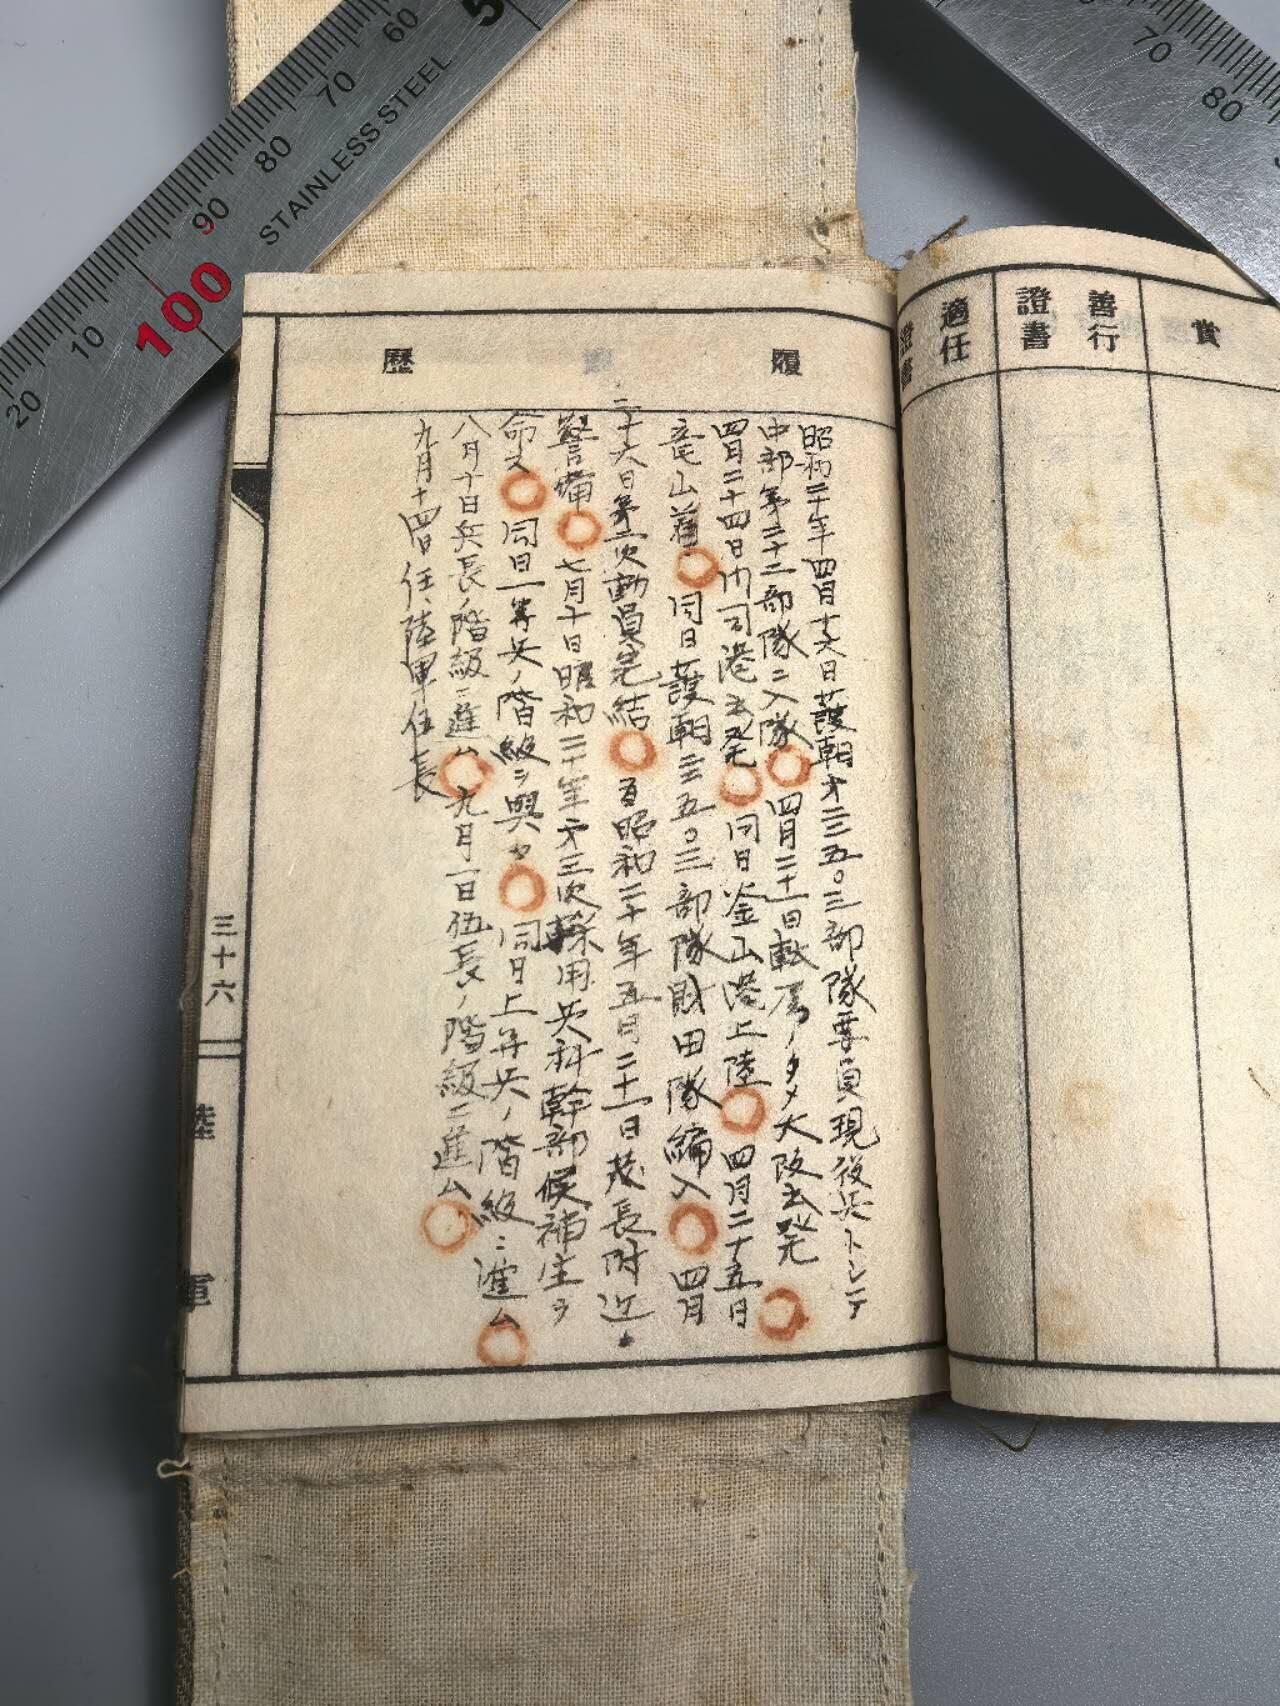 60 5
70
80
90
100
10
20
STAINLESS STEEL
70
80
賞
善行
證書
適任
證書
履 歴
昭和二十年四月十六日護朝才二三五〇三部隊要員現役兵トシテ
中部第二十二部隊ニ入隊〇四月二十一日転属ノタメ大阪出発〇
四月二十四日門司港出発〇同日釜山港上陸〇四月二十五日
竜山着〇同日護朝二三五〇三部隊財田隊編入〇四月
二十六日第二次動員完結〇自昭和二十年五月二十一日茂長附近
警備〇七月十日昭和二十年才三次採用兵科幹部候補生ヲ
命ス〇同日一等兵ノ階級ヲ與フ〇同日上等兵ノ階級ニ進ム〇
八月十日兵長ノ階級ニ進ム〇九月一日伍長ノ階級ニ進ム〇
九月十四日任陸軍伍長
三十六
陸 軍